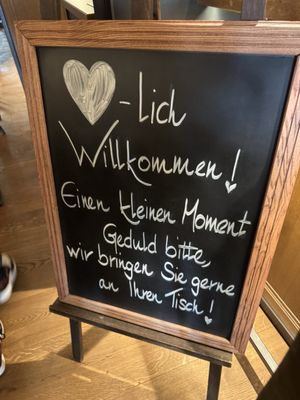 ♥-lich
Willkommen!
Einen kleinen Moment
Geduld bitte,
wir bringen Sie gerne
an Ihren Tisch!